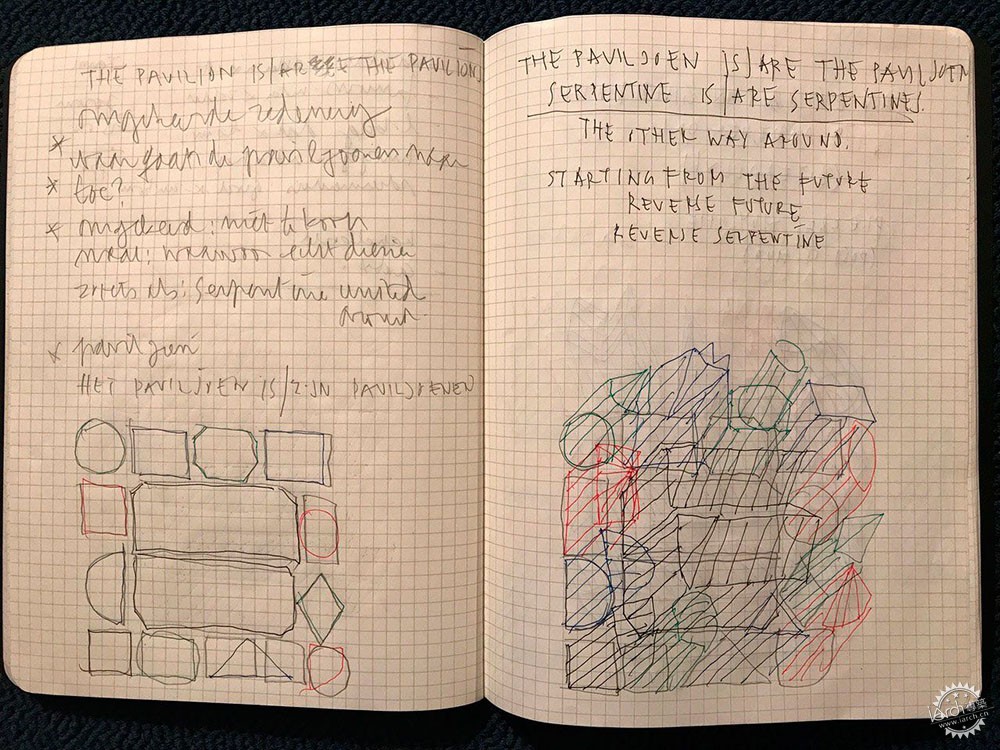 THE PAVILION IS/ARE THE PAVILIONS
omgekeerde redenering
* waar gaan de paviljoenen naar
* toe?
* omgekeerd: niet te koop
maar: waarvoor echt dienen
zoiets als: serpentine united
* paviljoen
HET PAVILJOEN IS/ZIJN PAVILJOENEN
THE PAVILJOEN IS/ARE THE PAVILJOEN
SERPENTINE IS/ARE SERPENTINES.
THE OTHER WAY AROUND.
STARTING FROM THE FUTURE
REVERSE FUTURE
REVERSE SERPENTINE
iarch
www.iarch.cn